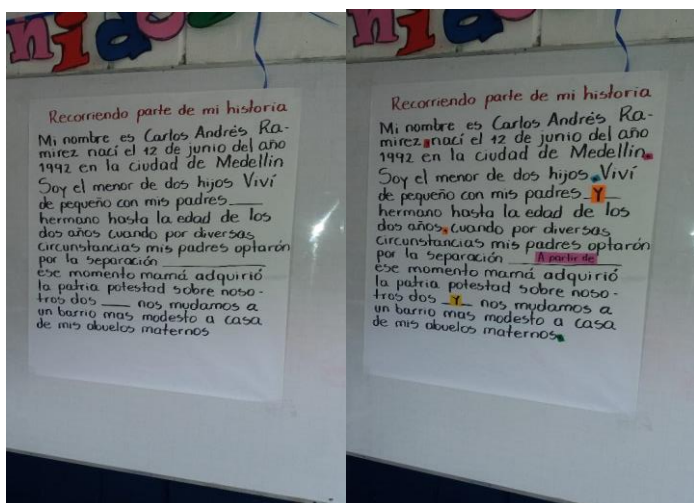 nidos
Recorriendo parte de mi historia
Mi nombre es Carlos Andrés Ra-
mirez nací el 12 de junio del año
1992 en la ciudad de Medellin
Soy el menor de dos hijos Viví
de pequeño con mis padres ____
hermano hasta la edad de los
dos años cuando por diversas
circunstancias mis padres optarón
por la separación ____________
ese momento mamá adquirió
la patria potestad sobre noso-
tros dos ____ nos mudamos a
un barrio mas modesto a casa
de mis abuelos maternos
nido
Recorriendo parte de mi historia
Mi nombre es Carlos Andrés Ra-
mirez, nací el 12 de junio del año
1992 en la ciudad de Medellin.
Soy el menor de dos hijos. Viví
de pequeño con mis padres Y
hermano hasta la edad de los
dos años, cuando por diversas
circunstancias mis padres optarón
por la separación A partir de
ese momento mamá adquirió
la patria potestad sobre noso-
tros dos Y nos mudamos a
un barrio mas modesto a casa
de mis abuelos maternos.